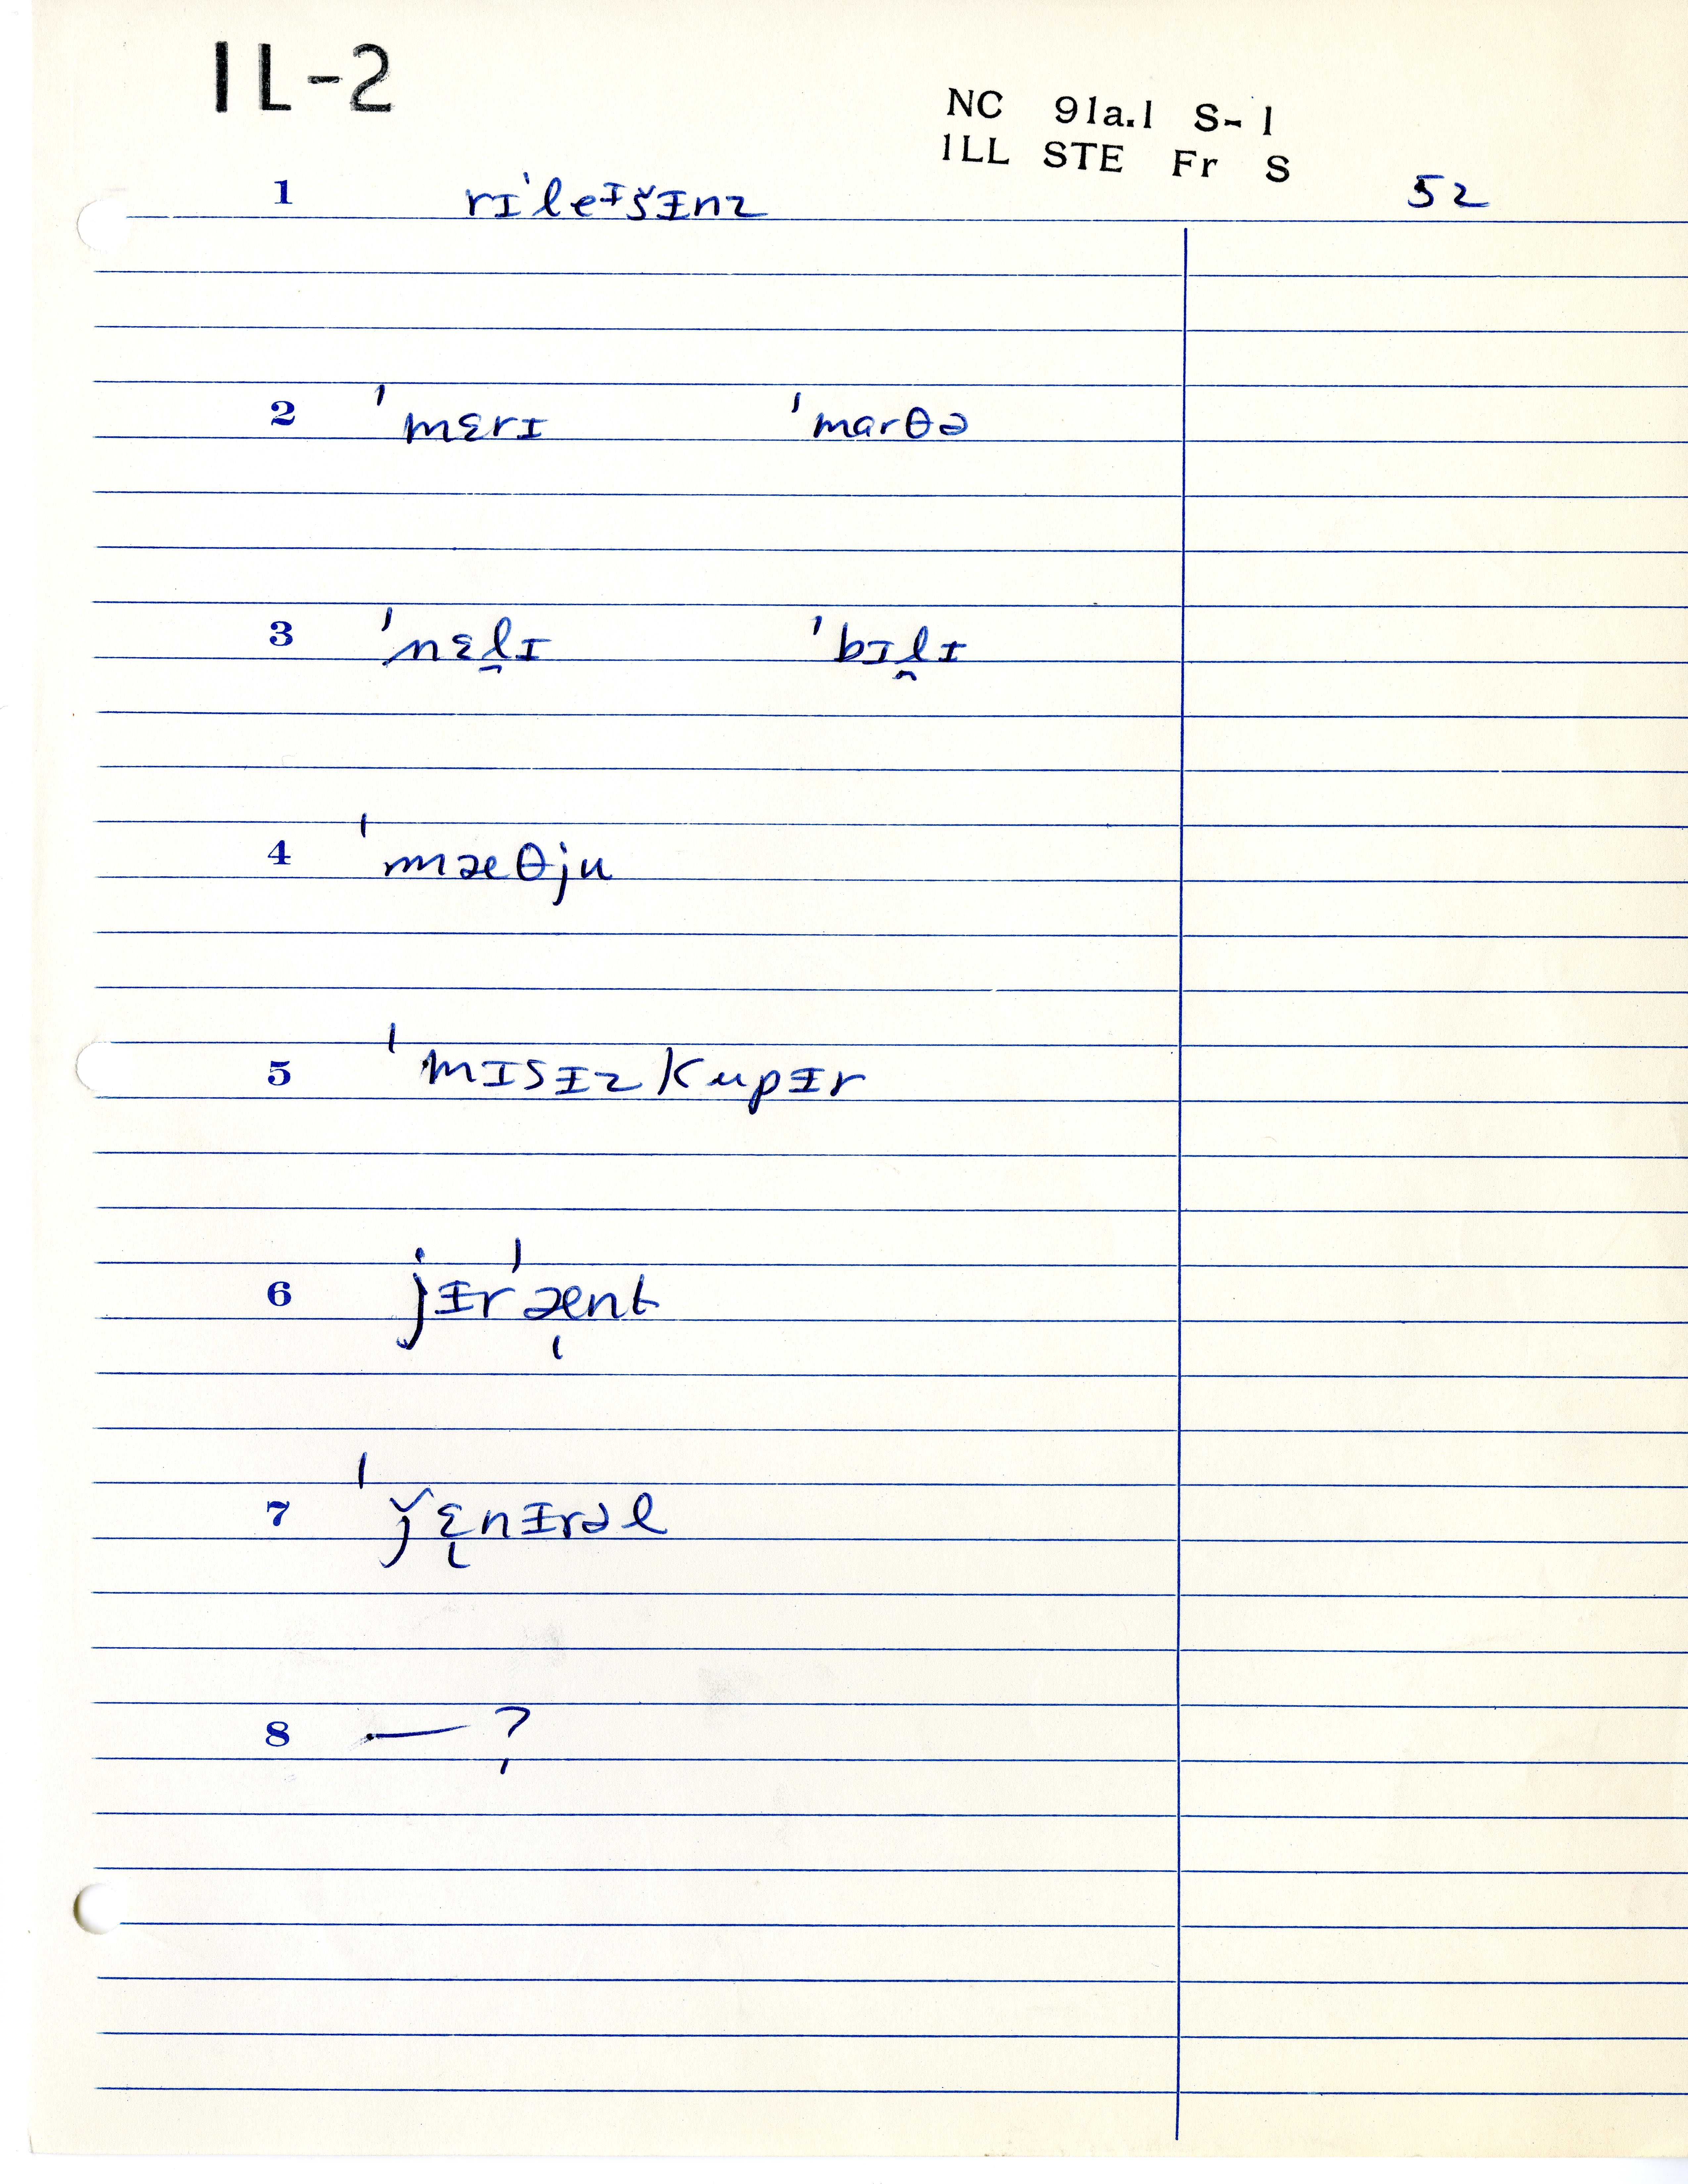 IL-2
NC 91a.1 S-1
ILL STE Fr S
52
1 rɪˈleᶦšɨnz
2 ˈmɛrɪ ˈmarθə
3 ˈnɛl̯ɪ ˈbɪl̯ɪ
4 ˈmæθju
5 ˈmɪsɨz kupɨr
6 jɨrˈæ̨nt
7 ˈǰɛ̨nɨrəl
8 — ?